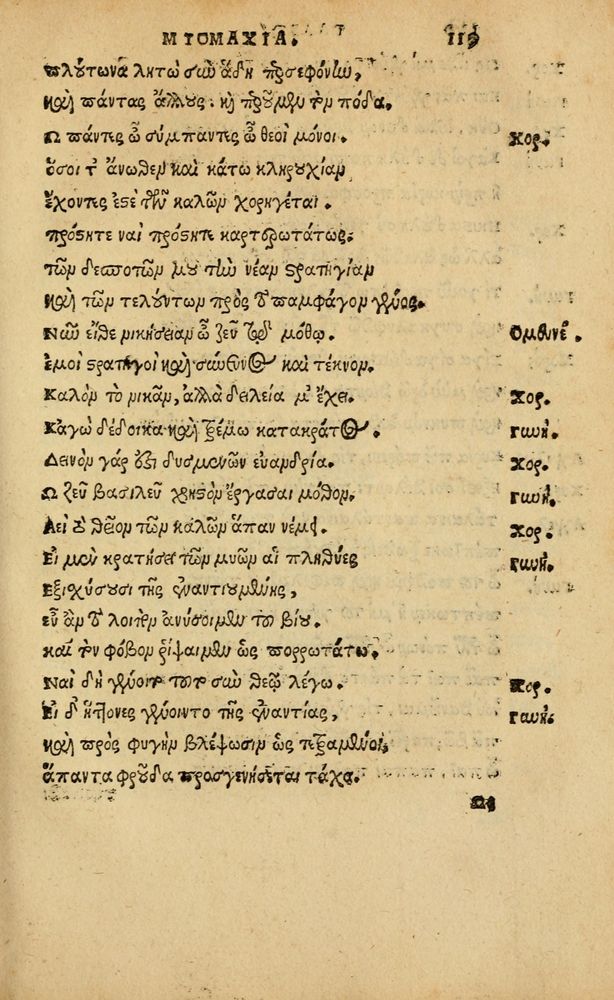 ΜΥΟΜΑΧΙΑ. 119
πλούτωνα λητὼ σὺν ἅδη προσεφόνην,
καὶ πάντας ἄλλους. καὶ προῦμεν τὸν πόδα.
Ω πάντες ὦ σύμπαντες ὦ θεοὶ μόνοι. χορ.
ὅσοι τ' ἄνωθεν καὶ κάτω κληρουχίαν
ἔχοντες ἐστὲ τῶν καλῶν χορηγέται.
πρόσητε ναὶ πρόσητε καρτερωτάτως.
τῶν δεσποτῶν μου τὴν νέαν στρατηγίαν
καὶ τῶν τελούντων πρὸς τὸ παμφάγον γένος.
Νῦν εἴθε νικήσειαν ὦ ζεῦ τῷ μόθῳ. Ομευνέ.
ἐμοὶ στρατηγοὶ καὶ σύνευνος καὶ τέκνον.
Καλὸν τὸ νικᾶν, ἀλλὰ δειλεία μ' ἔχει. χορ.
Κἀγὼ δέδοικα καὶ τρέμω κατακράτος. γυνή.
Δεινὸν γάρ ἐστι δυσμενῶν εὐανδρία. χορ.
Ω ζεῦ βασιλεῦ χρηστὸν ἔργασαι μόθον. γυνή.
Αεὶ τὸ θεῖον τῶν καλῶν ἅπαν νέμει. χορ.
Εἰ μὲν κρατήσει τῶν μυῶν αἱ πληθύες γυνή.
Εξισχύσουσι τῆς ἐναντιουμένης,
εὖ ἂν τὸ λοιπὸν ἀνύσοιμεν τοῦ βίου.
καὶ τὸν φόβον ῥίψαιμεν ὡς πορρωτάτω.
Ναὶ δὴ γένοιτο τοῦτο σὺν θεῷ λέγω. χορ.
Εἰ δ' ἥττονες γένοιντο τῆς ἐναντίας, γυνή.
καὶ πρὸς φυγὴν βλέψωσιν ὡς πετραμένοι,
ἅπαντα φροῦδα προσγενήσεται τάχει.
Ως